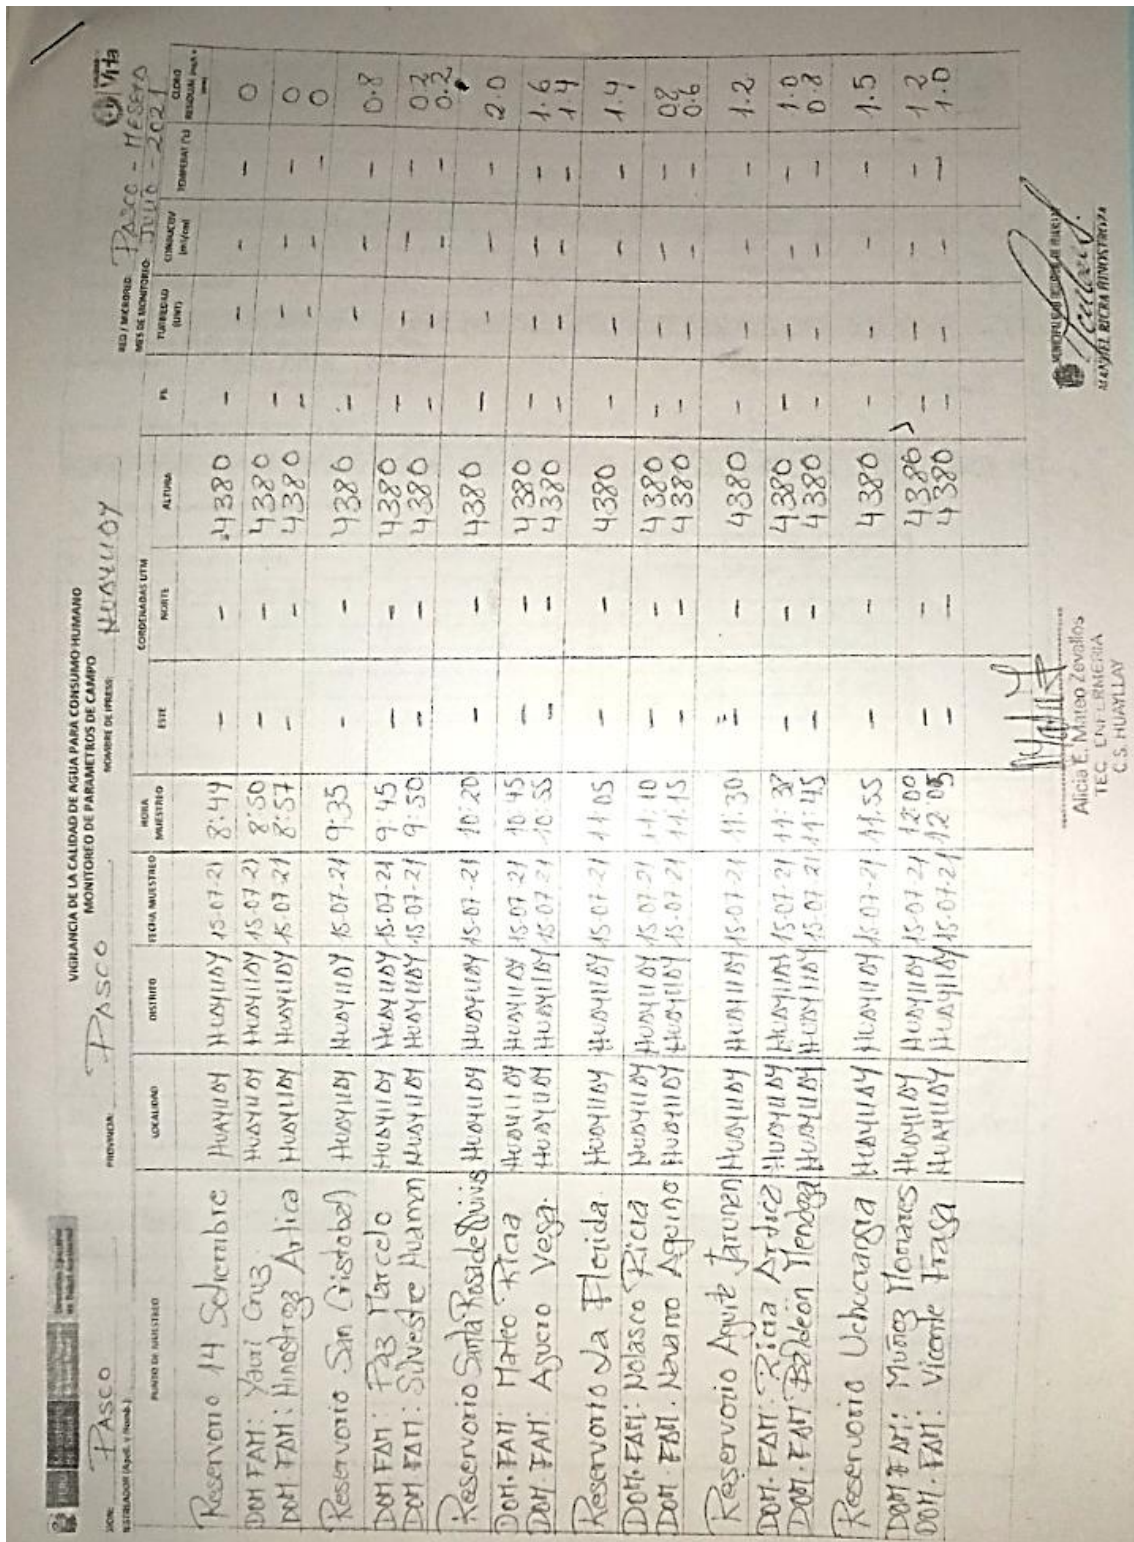 VIGILANCIA DE LA CALIDAD DE AGUA PARA CONSUMO HUMANO
MONITOREO DE PARAMETROS DE CAMPO
Vida
PASCO PROVINCIA: PASCO NOMBRE DE IPRESS: HUAYLLAY RED / MICRORED: PASCO - MESETA
MES DE MONITORIO: JULIO - 2021
PUNTO DE MUESTREO LOCALIDAD DISTRITO FECHA MUESTREO HORA MUESTREO CORDENADAS UTM ESTE NORTE ALTURA TURBIEDAD (UNT) CLORO RESIDUAL
Reservorio 14 Setiembre Huayllay Huayllay 15-07-21 8:49 - - 4380 - - - - 0
DOM FAM: Yauri Cruz Huayllay Huayllay 15-07-21 8:50 - - 4380 - - - - 0
DOM FAM: Hinostroza Artica Huayllay Huayllay 15-07-21 8:57 - - 4380 - - - - 0
Reservorio San Cristobal Huayllay Huayllay 15-07-21 9:35 - - 4380 - - - - 0.8
DOM FAM: Paz Marcelo Huayllay Huayllay 15-07-21 9:45 - - 4380 - - - - 0.2
DOM FAM: Silvestre Huaman Huayllay Huayllay 15-07-21 9:50 - - 4380 - - - - 0.2
Reservorio Santa Rosa de Quives Huayllay Huayllay 15-07-21 10:20 - - 4380 - - - - 2.0
DOM. FAM: Mateo Ricia Huayllay Huayllay 15-07-21 10:45 - - 4380 - - - - 1.6
DOM. FAM: Vega. Huayllay Huayllay 15-07-21 10:55 - - 4380 - - - - 1.4
Reservorio La Florida Huayllay Huayllay 15-07-21 11:05 - - 4380 - - - - 1.4
DOM. FAM: Nolasco Ricia Huayllay Huayllay 15-07-21 11:10 - - 4380 - - - -
DOM. FAM. Navarro Aquino Huayllay Huayllay 15-07-21 11:15 - - 4380 - - - - 0.6
Reservorio Huayllay Huayllay 15-07-21 11:30 - - 4380 - - - - 1.2
DOM. FAM: Ricia Huayllay Huayllay 15-07-21 11:38 - - 4380 - - - - 1.0
DOM. FAM: Baldeon Mendoza Huayllay Huayllay 15-07-21 11:45 - - 4380 - - - - 0.8
Reservorio Ucheccrangra Huayllay Huayllay 15-07-21 11:55 - - 4380 - - - - 1.5
DOM FAM: Muñoz Huayllay Huayllay 15-07-21 12:00 - - 4380 - - - - 1.2
DOM. FAM: Vicente Fraga Huayllay Huayllay 15-07-21 12:05 - - 4380 - - - - 1.0
Alicia E. Mateo Zevallos
TEC. ENFERMERIA
C.S. HUAYLLAY
MANUEL RICRA HINOSTROZA